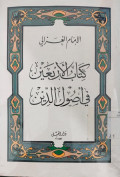 الإمام الغزالي
كتاب الأربعين
في أصول الدين